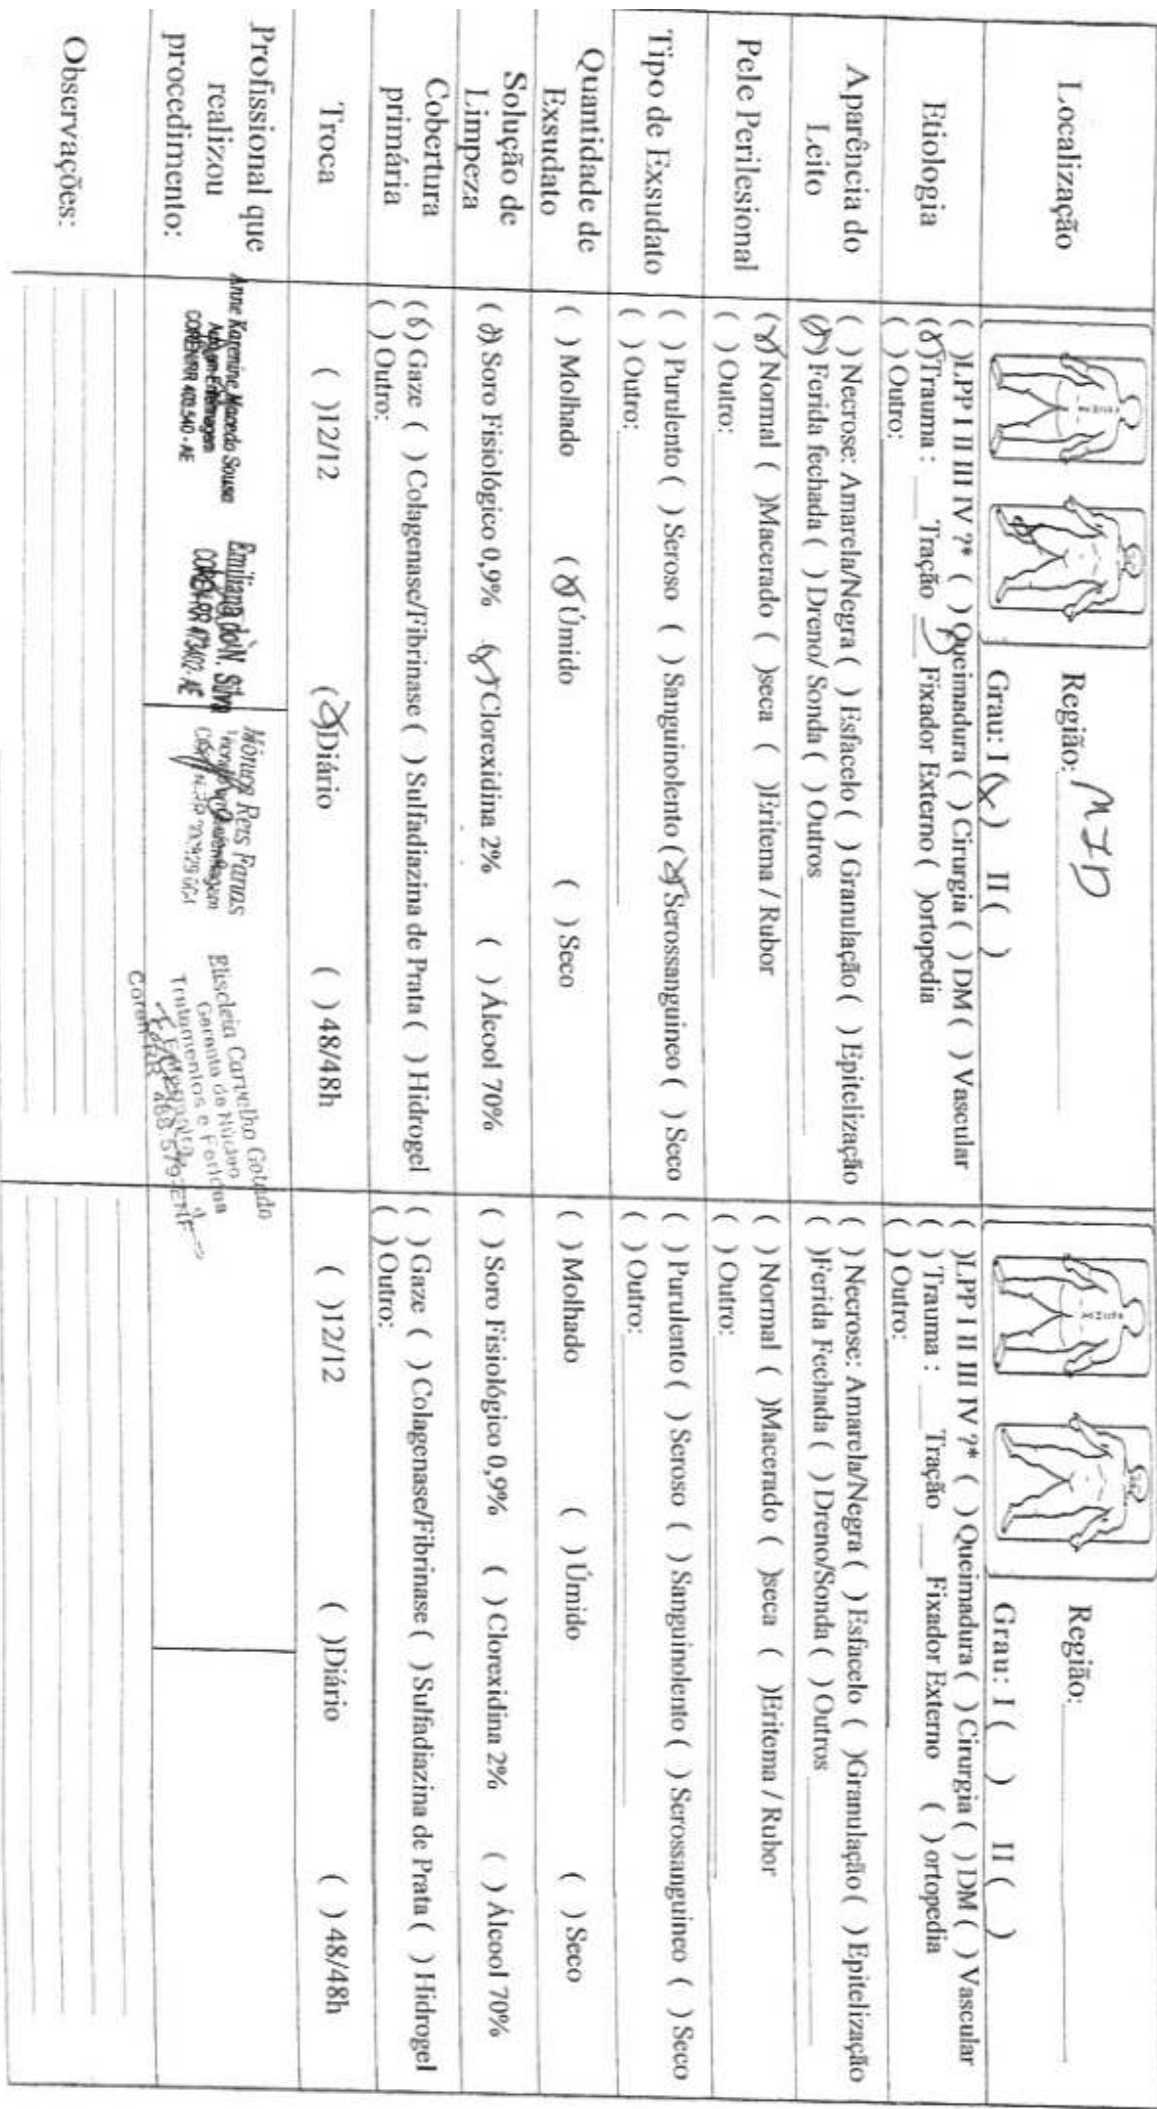 Localização
Região: MID
Grau: I (x) II ( )
Região:
Grau: I ( ) II ( )
Etiologia
( )LPP I II III IV ?* ( ) Queimadura ( ) Cirurgia ( ) DM ( ) Vascular
(x)Trauma : ___ Tração ___ Fixador Externo ( )ortopedia
( ) Outro:
( )LPP I II III IV ?* ( ) Queimadura ( ) Cirurgia ( ) DM ( ) Vascular
( ) Trauma : ___ Tração ___ Fixador Externo ( ) ortopedia
( ) Outro:
Aparência do
Leito
( ) Necrose: Amarela/Negra ( ) Esfacelo ( ) Granulação ( ) Epitelização
(x) Ferida fechada ( ) Dreno/ Sonda ( ) Outros
( ) Necrose: Amarela/Negra ( ) Esfacelo ( )Granulação ( ) Epitelização
( )Ferida Fechada ( ) Dreno/Sonda ( ) Outros
Pele Perilesional
(x) Normal ( )Macerado ( )seca ( )Eritema / Rubor
( ) Outro:
( ) Normal ( )Macerado ( )seca ( )Eritema / Rubor
( ) Outro:
Tipo de Exsudato
( ) Purulento ( ) Seroso ( ) Sanguinolento (x) Serossanguineo ( ) Seco
( ) Outro:
( ) Purulento ( ) Seroso ( ) Sanguinolento ( ) Serossanguineo ( ) Seco
( ) Outro:
Quantidade de
Exsudato
( ) Molhado (x) Úmido ( ) Seco
( ) Molhado ( ) Úmido ( ) Seco
Solução de
Limpeza
(x) Soro Fisiológico 0,9% (x) Clorexidina 2% ( ) Álcool 70%
( ) Soro Fisiológico 0,9% ( ) Clorexidina 2% ( ) Álcool 70%
Cobertura
primária
(x) Gaze ( ) Colagenase/Fibrinase ( ) Sulfadiazina de Prata ( ) Hidrogel
( ) Outro:
( ) Gaze ( ) Colagenase/Fibrinase ( ) Sulfadiazina de Prata ( ) Hidrogel
( ) Outro:
Troca
( )12/12 (x)Diário ( ) 48/48h
( )12/12 ( )Diário ( ) 48/48h
Profissional que
realizou
procedimento:
Anne Karenine Macedo Sousa
COREN/RR 403.540 - AE
Emiliana do N. Silva
COREN-RR 473402-AE
Reis Farias
Carvalho
Gerente de Núcleo
Tratamentos e Feridas
Observações: